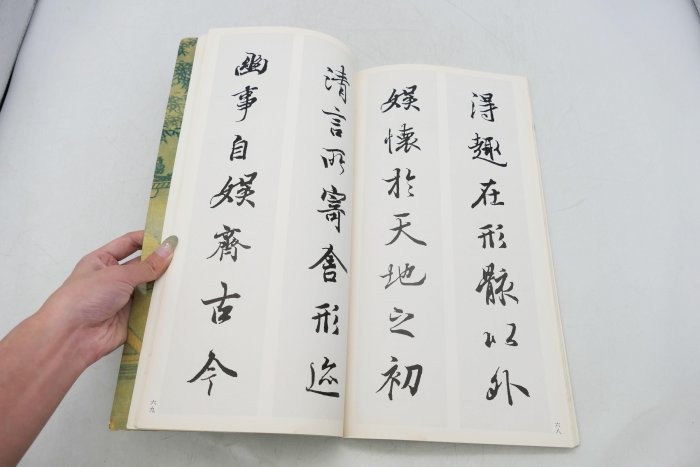 得趣在形骸以外
娱懷於天地之初
六八
清言所寄舍形迹
幽事自娱齊古今
六九